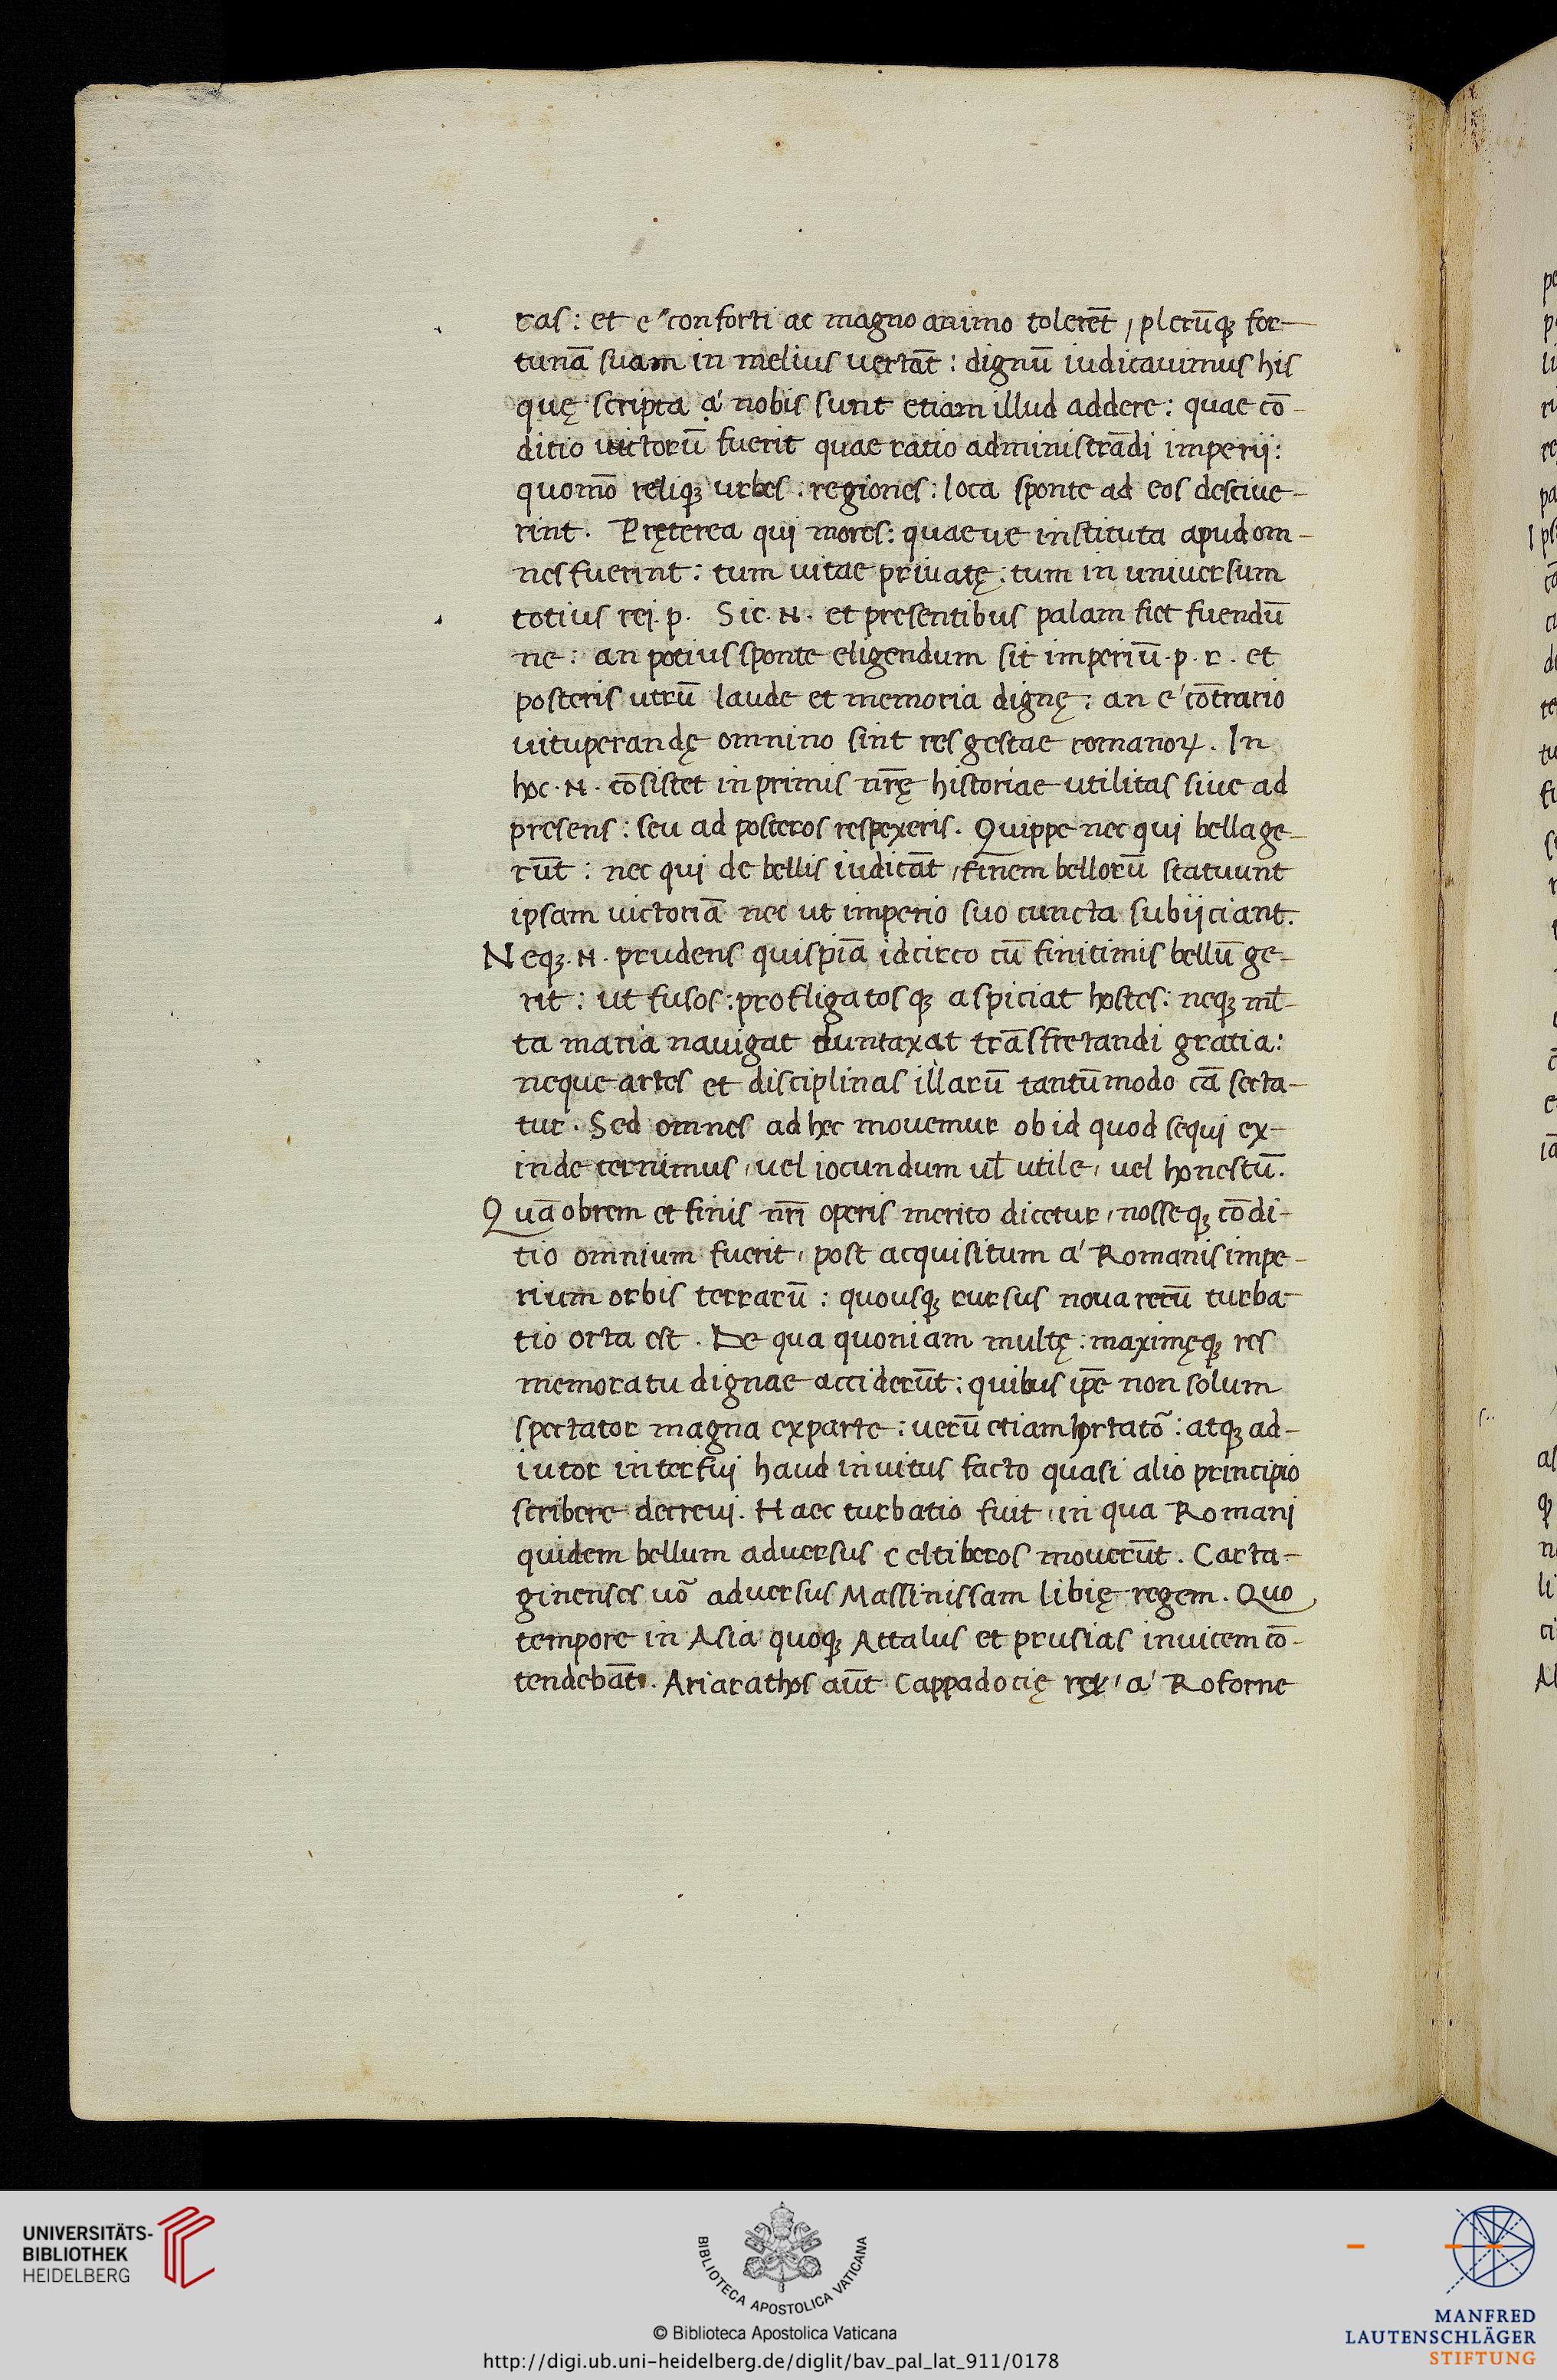 ras: et e'' con forti ac magno animo tolerēt, plerūqꝫ for-
tunā suam in melius vertāt: dignū iudicavimus his
quę scripta á nobis sunt etiam illud addere: quae cō-
ditio victorū fuerit quae ratio administrādi imperij:
quomō reliqꝫ urbes. regiones: loca sponte ad eos descive-
rint. Pręterea qui mores: quaeve instituta apud om-
nes fuerint: tum vitae privatę: tum in universum
totius rei. p. Sic. N. et presentibus palam fiet fuendū
ne: an potius sponte eligendum sit imperiū. p. r. et
posteris utrū laude et memoria dignę: an e' cōtrario
vituperandę omnino sint res gestae romanoꝝ. In
hoc. N. cōsistet in primis nr̄ę historiae utilitas sive ad
presens: seu ad posteros respexeris. Quippe nec qui bella ge-
rūt: nec qui de bellis iudicāt, finem bellorū statuunt
ipsam victoriā nec ut imperio suo cuncta subijciant.
Neqꝫ. N. prudens quispiā idcirco cū finitimis bellū ge-
rit: ut fusos: profligatosqꝫ aspiciat hostes: neqꝫ ml̄-
ta maria navigat duntaxat trāsfretandi gratia:
neque artes et disciplinas illarū tantūmodo cā secta-
tur. Sed omnes ad hec movemur ob id quod sequi ex-
inde cernimus, vel iocundum vl̄ utile, vel honestū.
Quāobrem et finis nr̄i operis merito dicetur, nosse qꝫ cōdi-
tio omnium fuerit, post acquisitum a' Romanis impe-
rium orbis terrarū: quousqꝫ rursus nova rerū turba-
tio orta est. De qua quoniam multę: maximęqꝫ res
memoratu dignae acciderūt: quibus ip̄e non solum
spectator magna ex parte: verū etiam hortatō: atqꝫ ad-
iutor interfui haud invitus facto quasi alio principio
scribere decrevi. Haec turbatio fuit, in qua Romani
quidem bellum adversus celtiberos moverūt. Carta-
ginenses vō adversus Massinissam libię regem. Quo
tempore in Asia quoqꝫ Attalus et prusias invicem cō-
tendebāt. Ariarathos aūt Cappadocię rex, a' Roforne
UNIVERSITÄTS-
BIBLIOTHEK
HEIDELBERG
BIBLIOTECA APOSTOLICA VATICANA
© Biblioteca Apostolica Vaticana
http://digi.ub.uni-heidelberg.de/diglit/bav_pal_lat_911/0178
MANFRED
LAUTENSCHLÄGER
STIFTUNG